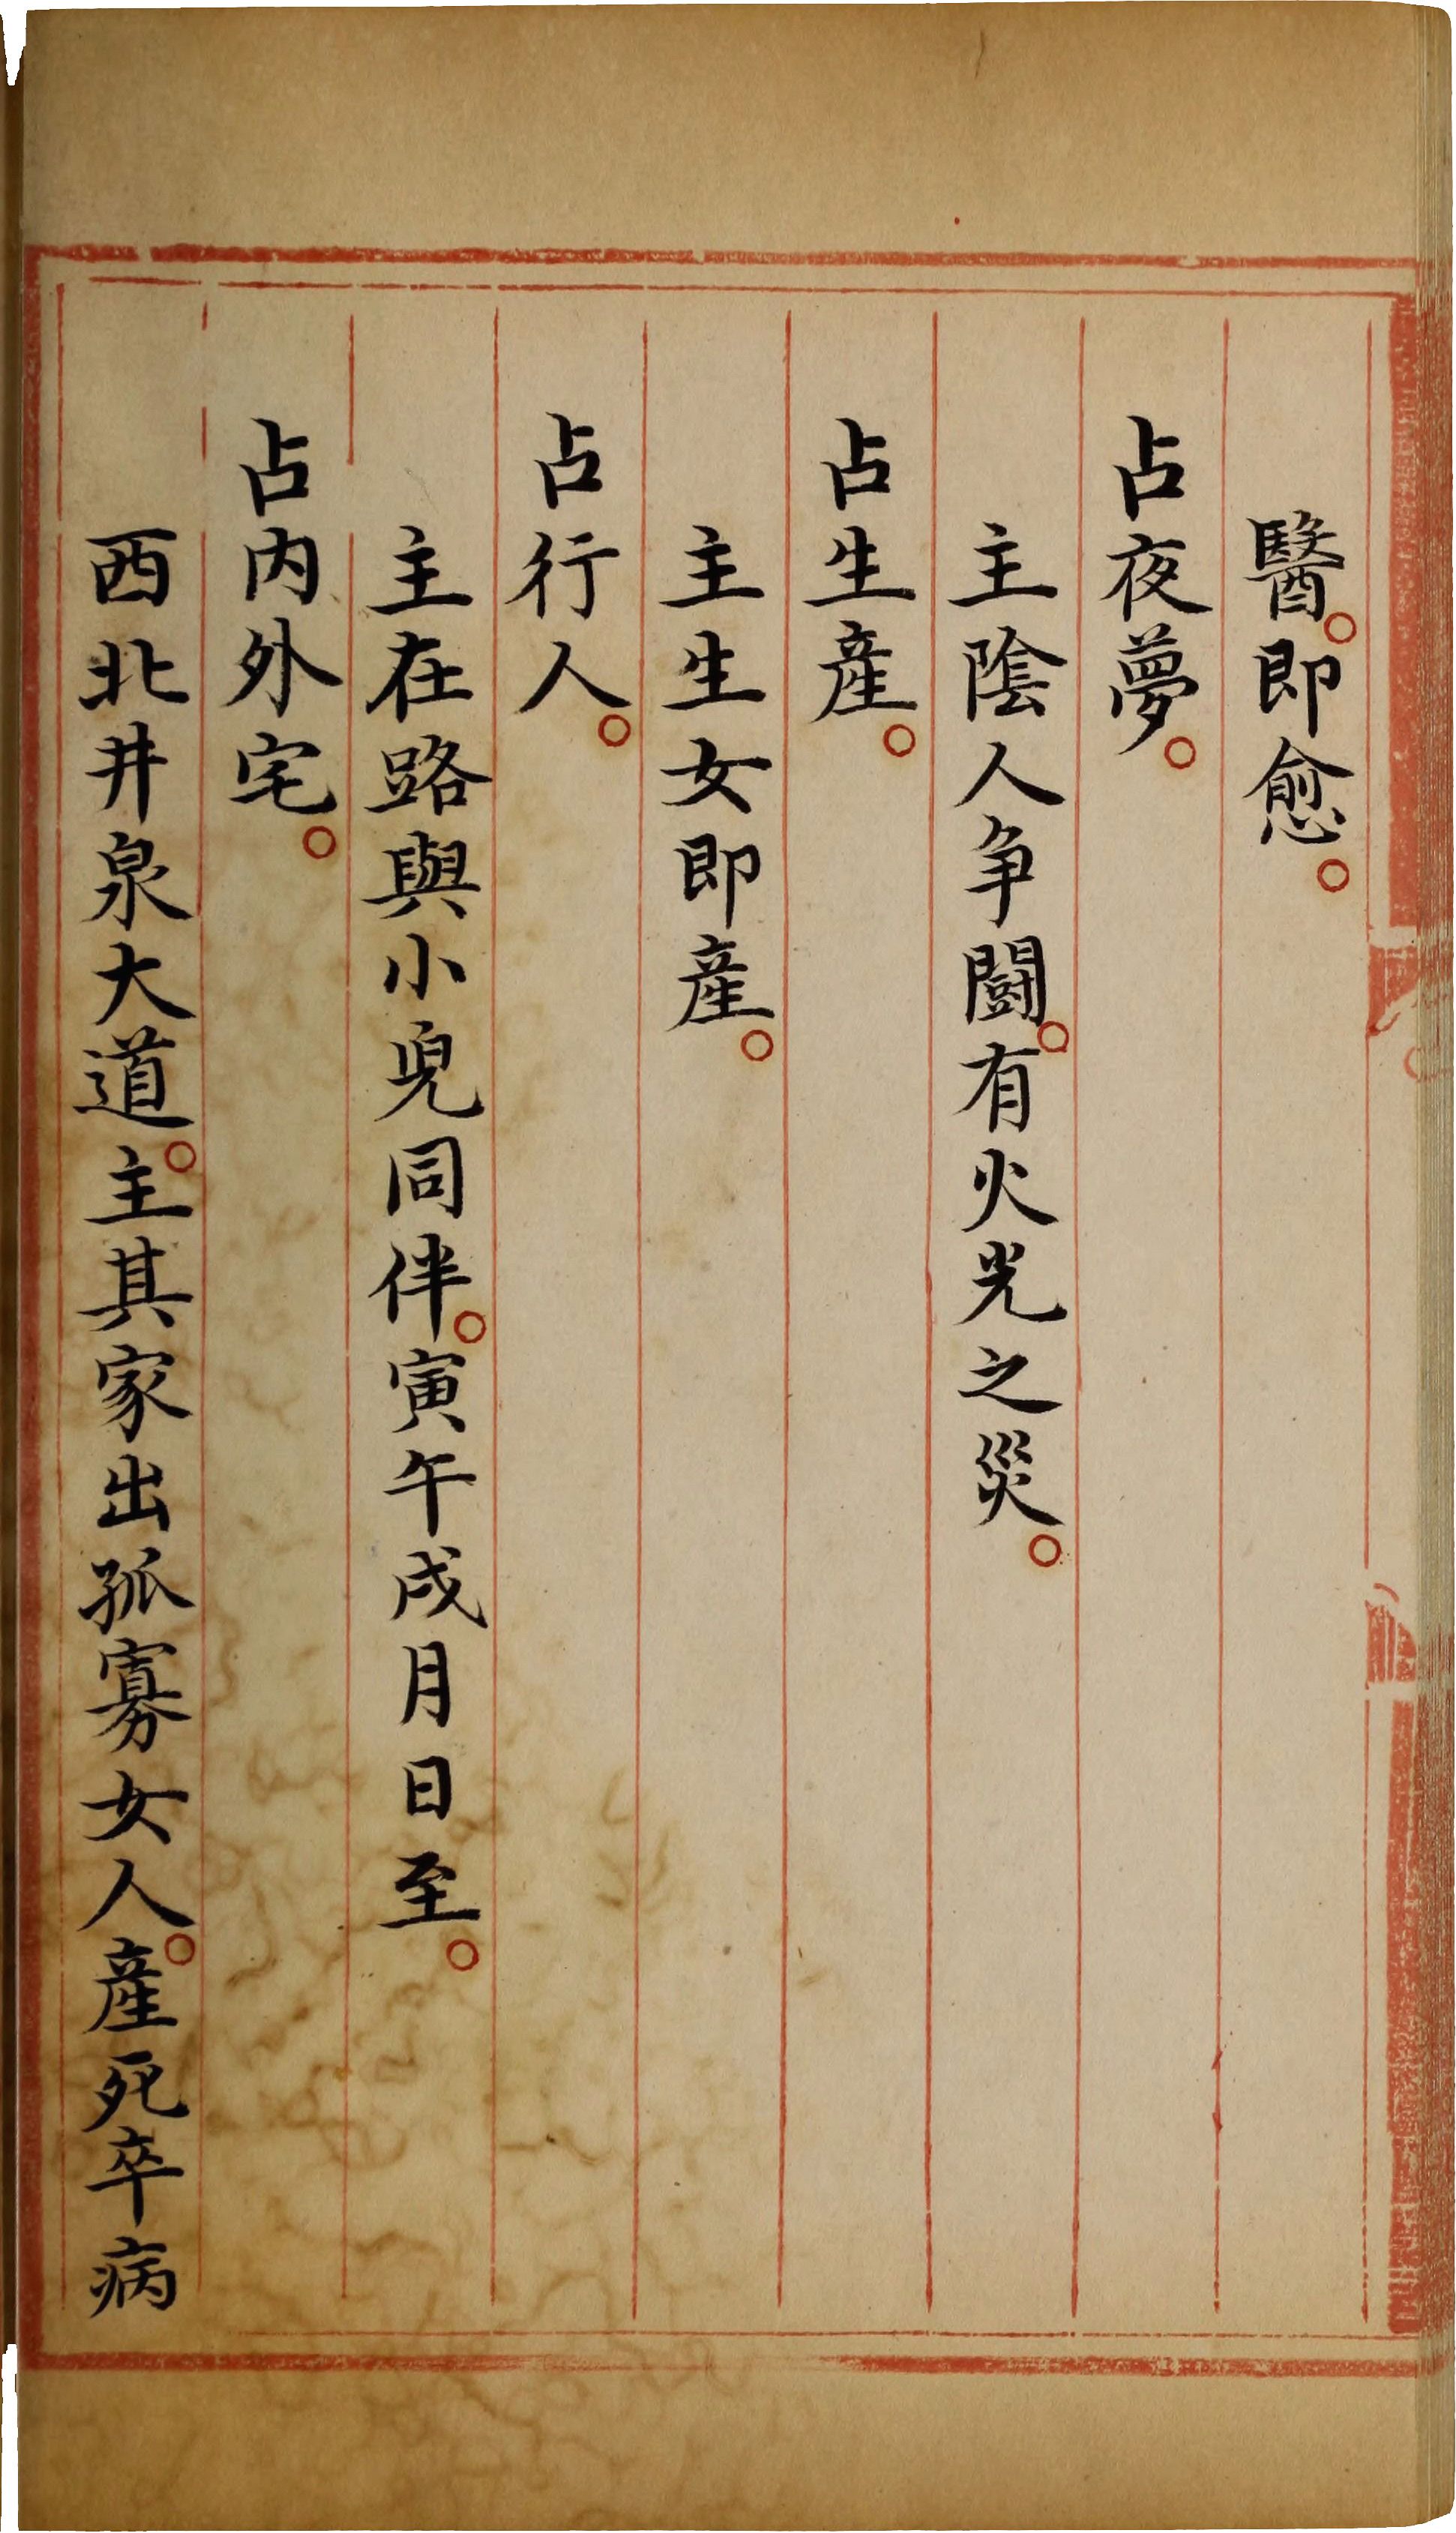 醫。即愈。
占夜夢。
主陰人争鬪。有火光之災。
占生產。
主生女即產。
占行人。
主在路與小兒同伴。寅午戌月日至。
占内外宅。
西北井泉大道。主其家出孤寡女人。產死卒病